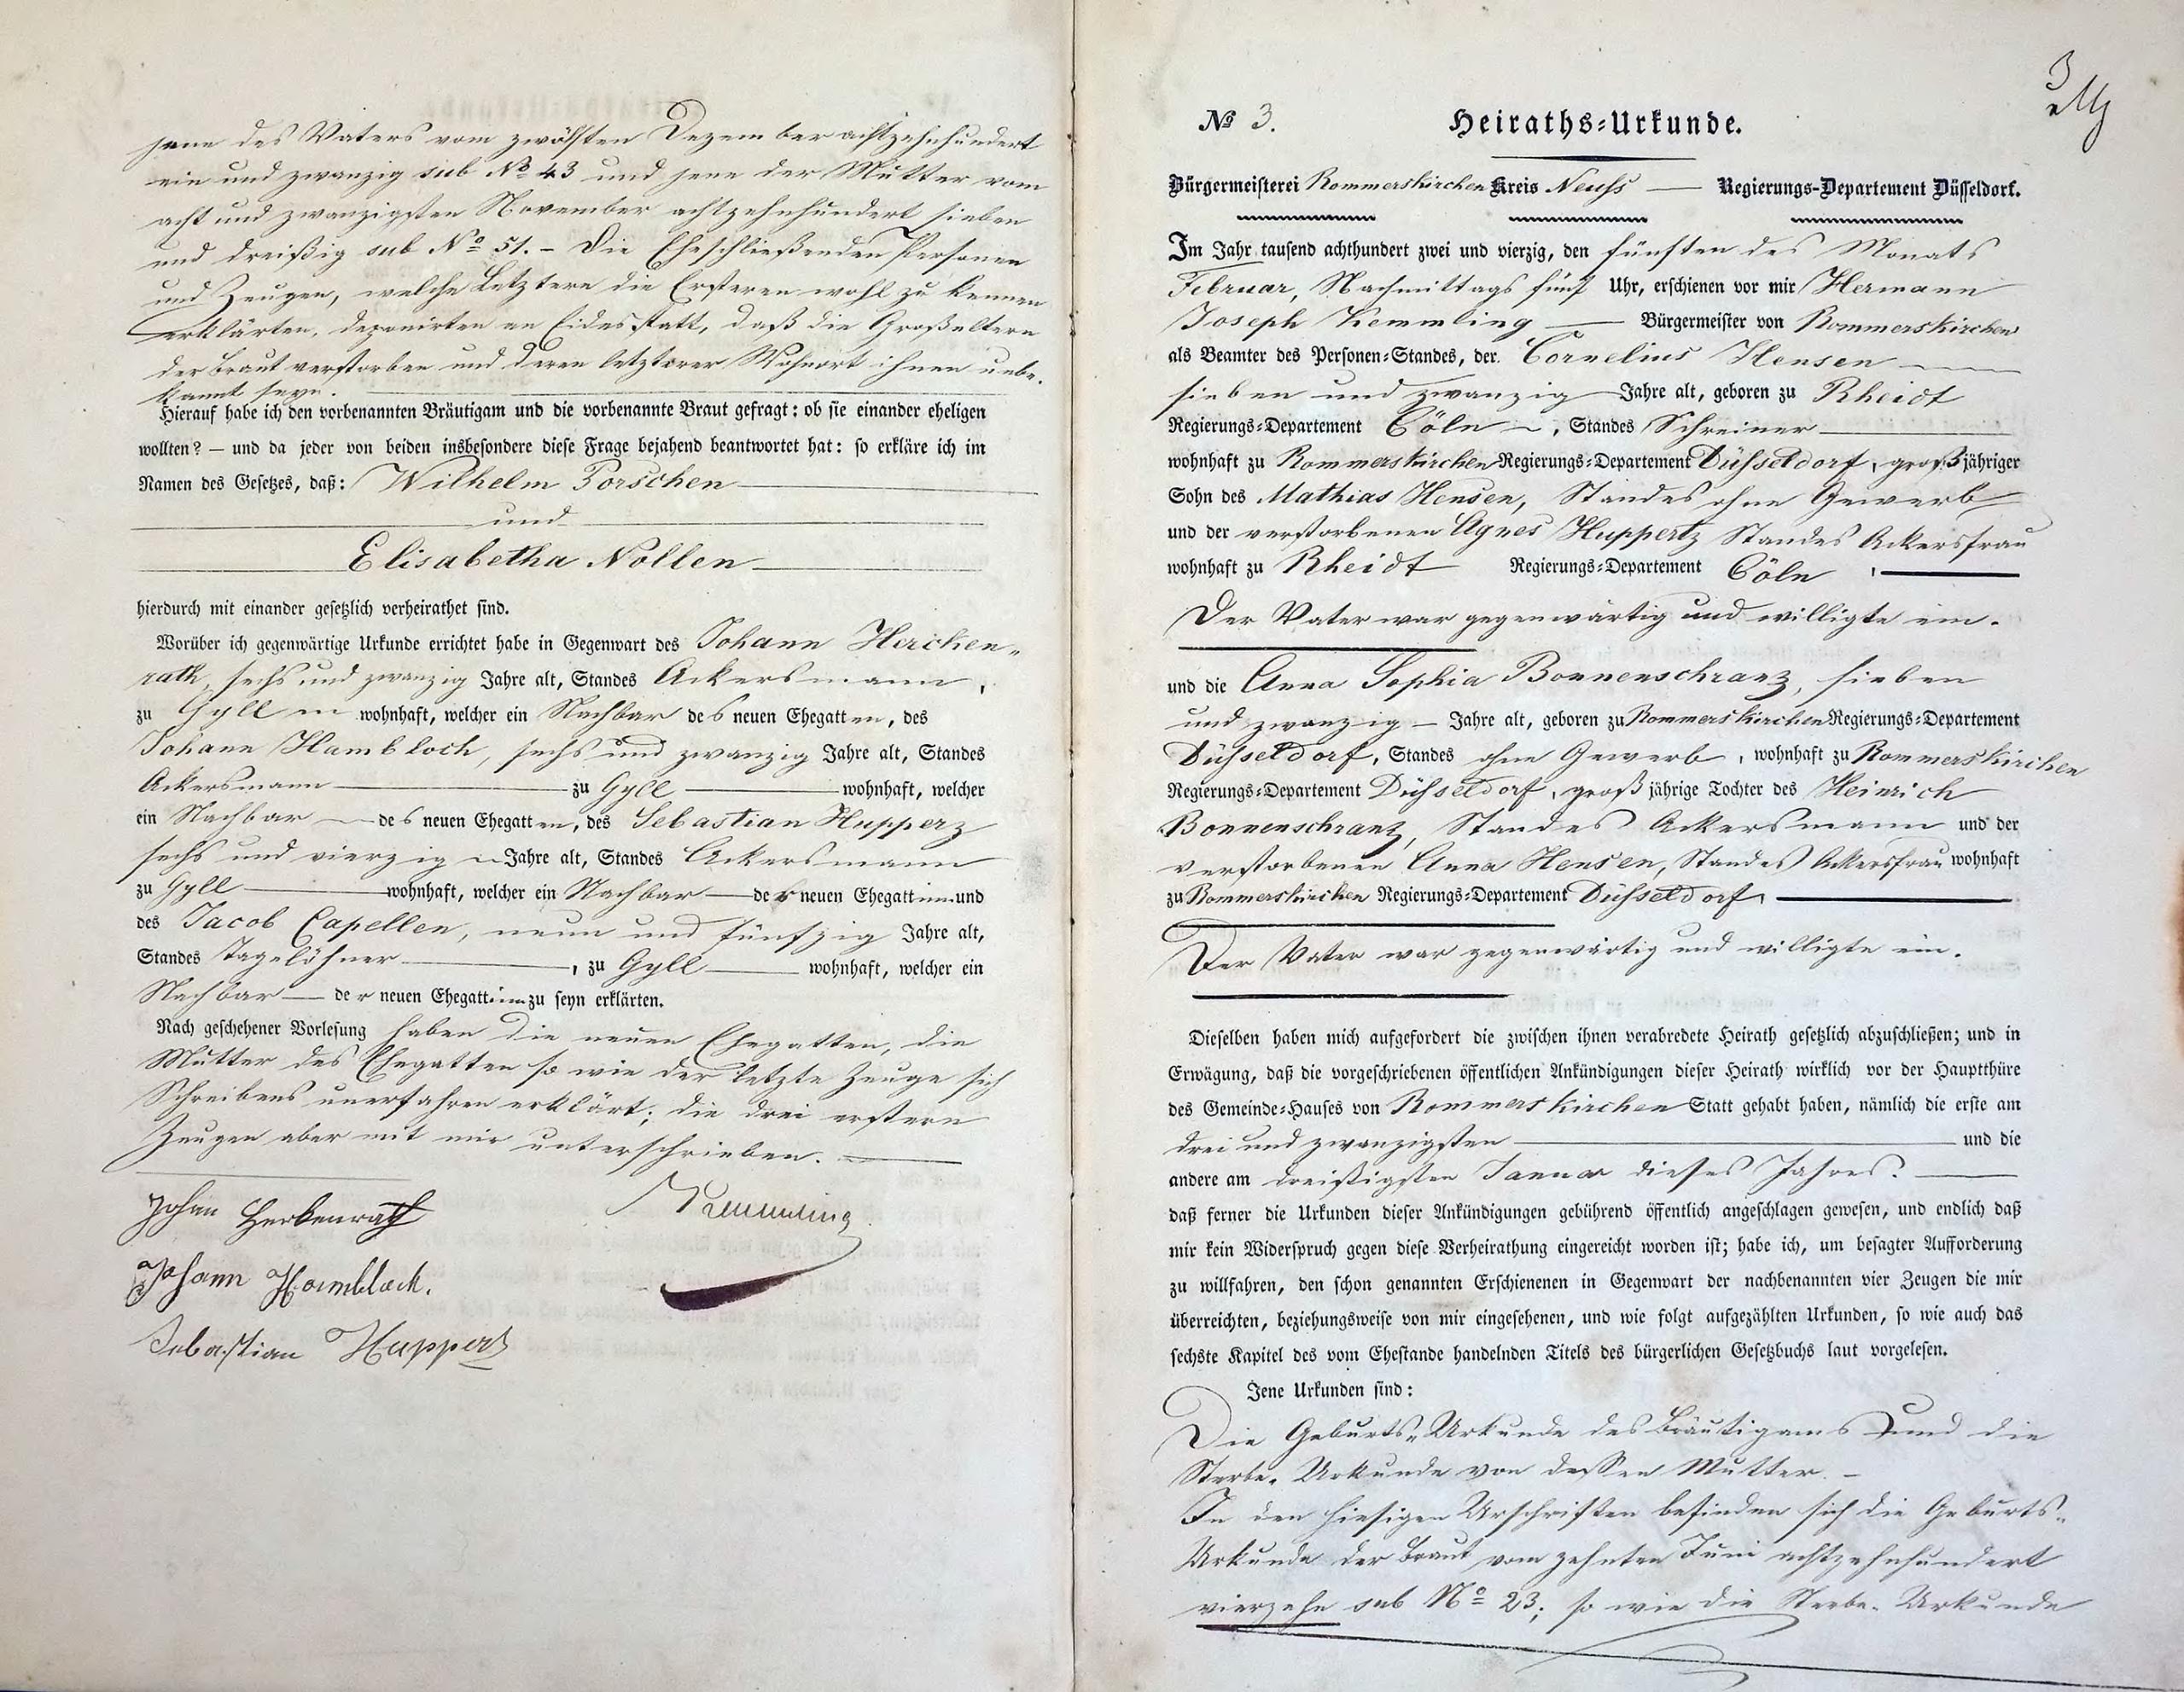 jene des Vaters vom zwölften Dezember achtzehnhundert
ein und zwanzig sub No 43 und jene der Mutter vom
acht und zwanzigsten November achtzehnhundert sieben
und dreißig sub No 51. – Die Eheschließenden Personen
und Zeugen, welche Letztere die Ersteren wohl zu kennen
erklärten, deponirten an Eidesstatt, daß die Großeltern
der Braut verstorben und deren letzterer Wohnort ihnen unbe-
kannt seye.
Hierauf habe ich den vorbenannten Bräutigam und die vorbenannte Braut gefragt: ob sie einander ehelichen
wollten? — und da jeder von beiden insbesondere diese Frage bejahend beantwortet hat: so erkläre ich im
Namen des Gesetzes, daß: Wilhelm Porschen
und
Elisabetha Nollen
hierdurch mit einander gesetzlich verheirathet sind.
Worüber ich gegenwärtige Urkunde errichtet habe in Gegenwart des Johann Herchen-
rath, sechs und zwanzig Jahre alt, Standes Ackersmann,
zu Gyll wohnhaft, welcher ein Nachbar des neuen Ehegatten, des
Johann Hambloch, sechs und zwanzig Jahre alt, Standes
Ackersmann zu Gyll wohnhaft, welcher
ein Nachbar des neuen Ehegatten, des Sebastian Hupperz
sechs und vierzig Jahre alt, Standes Ackersmann
zu Gyll wohnhaft, welcher ein Nachbar der neuen Ehegattinn und
des Jacob Capellen, neun und fünfzig Jahre alt,
Standes Tagelöhner, zu Gyll wohnhaft, welcher ein
Nachbar der neuen Ehegattinn zu seyn erklärten.
Nach geschehener Vorlesung haben die neuen Ehegatten, die
Mutter des Ehegatten so wie der letzte Zeuge sich
Schreibens unerfahren erklärt; die drei erstern
Zeugen aber mit mir unterschrieben.
Johan Herkenrath Kemmling
Johann Hambloch.
Sebastian Hupperz
3
No 3. Heiraths-Urkunde.
Bürgermeisterei Rommerskirchen Kreis Neuss — Regierungs-Departement Düsseldorf.
Im Jahr tausend achthundert zwei und vierzig, den fünften des Monats
Februar, Nachmittags fünf Uhr, erschienen vor mir Hermann
Joseph Kemmling — Bürgermeister von Rommerskirchen
als Beamter des Personen-Standes, der Cornelius Hensen
sieben und zwanzig Jahre alt, geboren zu Rheidt
Regierungs-Departement Cöln, Standes Schreiner
wohnhaft zu Rommerskirchen Regierungs-Departement Düsseldorf, großjähriger
Sohn des Mathias Hensen, Standes ohne Gewerb
und der verstorbenen Agnes Huppertz Standes Ackersfrau
wohnhaft zu Rheidt Regierungs-Departement Cöln,
Der Vater war gegenwärtig und willigte ein.
und die Anna Sophia Bonnenschranz, sieben
und zwanzig — Jahre alt, geboren zu Rommerskirchen Regierungs-Departement
Düsseldorf, Standes ohne Gewerb, wohnhaft zu Rommerskirchen
Regierungs-Departement Düsseldorf, großjährige Tochter des Heinrich
Bonnenschranz, Standes Ackersmann und der
verstorbenen Anna Hensen, Standes Ackersfrau wohnhaft
zu Rommerskirchen Regierungs-Departement Düsseldorf,
Der Vater war gegenwärtig und willigte ein.
Dieselben haben mich aufgefordert die zwischen ihnen verabredete Heirath gesetzlich abzuschließen; und in
Erwägung, daß die vorgeschriebenen öffentlichen Ankündigungen dieser Heirath wirklich vor der Hauptthüre
des Gemeinde-Hauses von Rommerskirchen Statt gehabt haben, nämlich die erste am
drei und zwanzigsten und die
andere am dreißigsten Januar dieses Jahres.
daß ferner die Urkunden dieser Ankündigungen gebührend öffentlich angeschlagen gewesen, und endlich daß
mir kein Widerspruch gegen diese Verheirathung eingereicht worden ist; habe ich, um besagter Aufforderung
zu willfahren, den schon genannten Erschienenen in Gegenwart der nachbenannten vier Zeugen die mir
überreichten, beziehungsweise von mir eingesehenen, und wie folgt aufgezählten Urkunden, so wie auch das
sechste Kapitel des vom Ehestande handelnden Titels des bürgerlichen Gesetzbuchs laut vorgelesen.
Jene Urkunden sind:
Die Geburts-Urkunde des Bräutigams und die
Sterbe-Urkunde von dessen Mutter. –
In den hiesigen Urschriften befinden sich die Geburts-
Urkunde der Braut vom zehnten Juni achtzehnhundert
vierzehn sub No 23; so wie die Sterbe-Urkunde